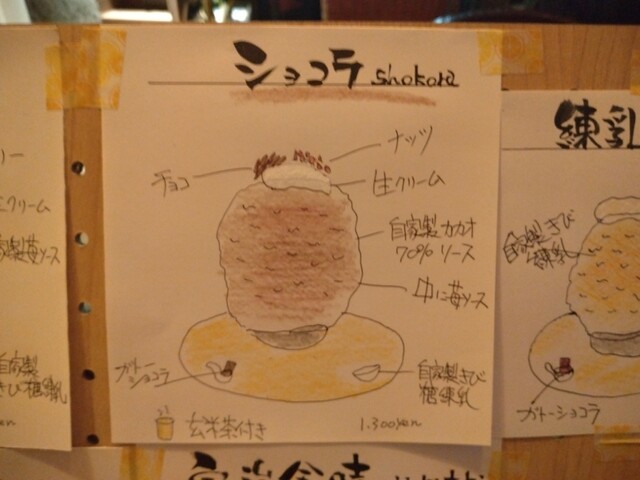 ショコラ shokora
ナッツ
チョコ
生クリーム
自家製カカオ
70% ソース
中に苺ソース
ガトー
ショコラ
自家製きび
糖練乳
玄米茶付き
1.300yen
リー
生クリーム
自家製苺ソース
自家製
きび糖練乳
yen
練乳
自家製きび
糖練乳
ガトーショコラ